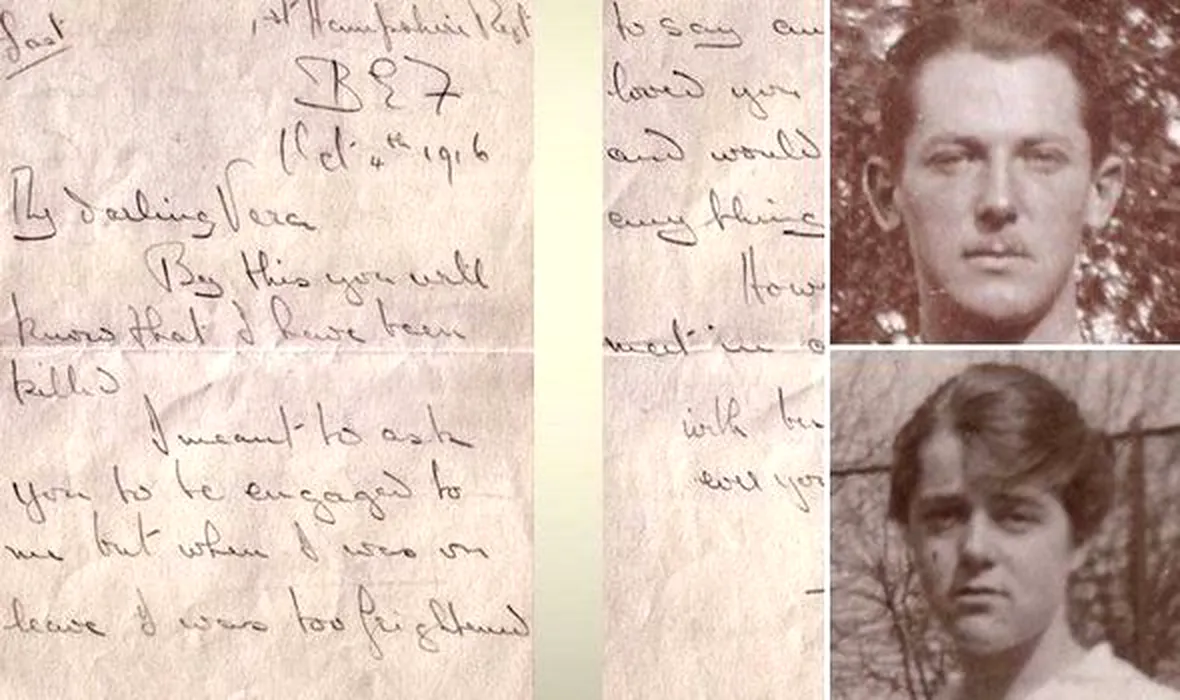 Last
1st Hampshire Regt
BEF
Oct 4th 1916
My darling Vera
By this you will
know that I have been
killed
I meant to ask
you to be engaged to
me but when I was on
leave I was too frightened
to say
loved you
and would
any thing
How
meet in
with
ever